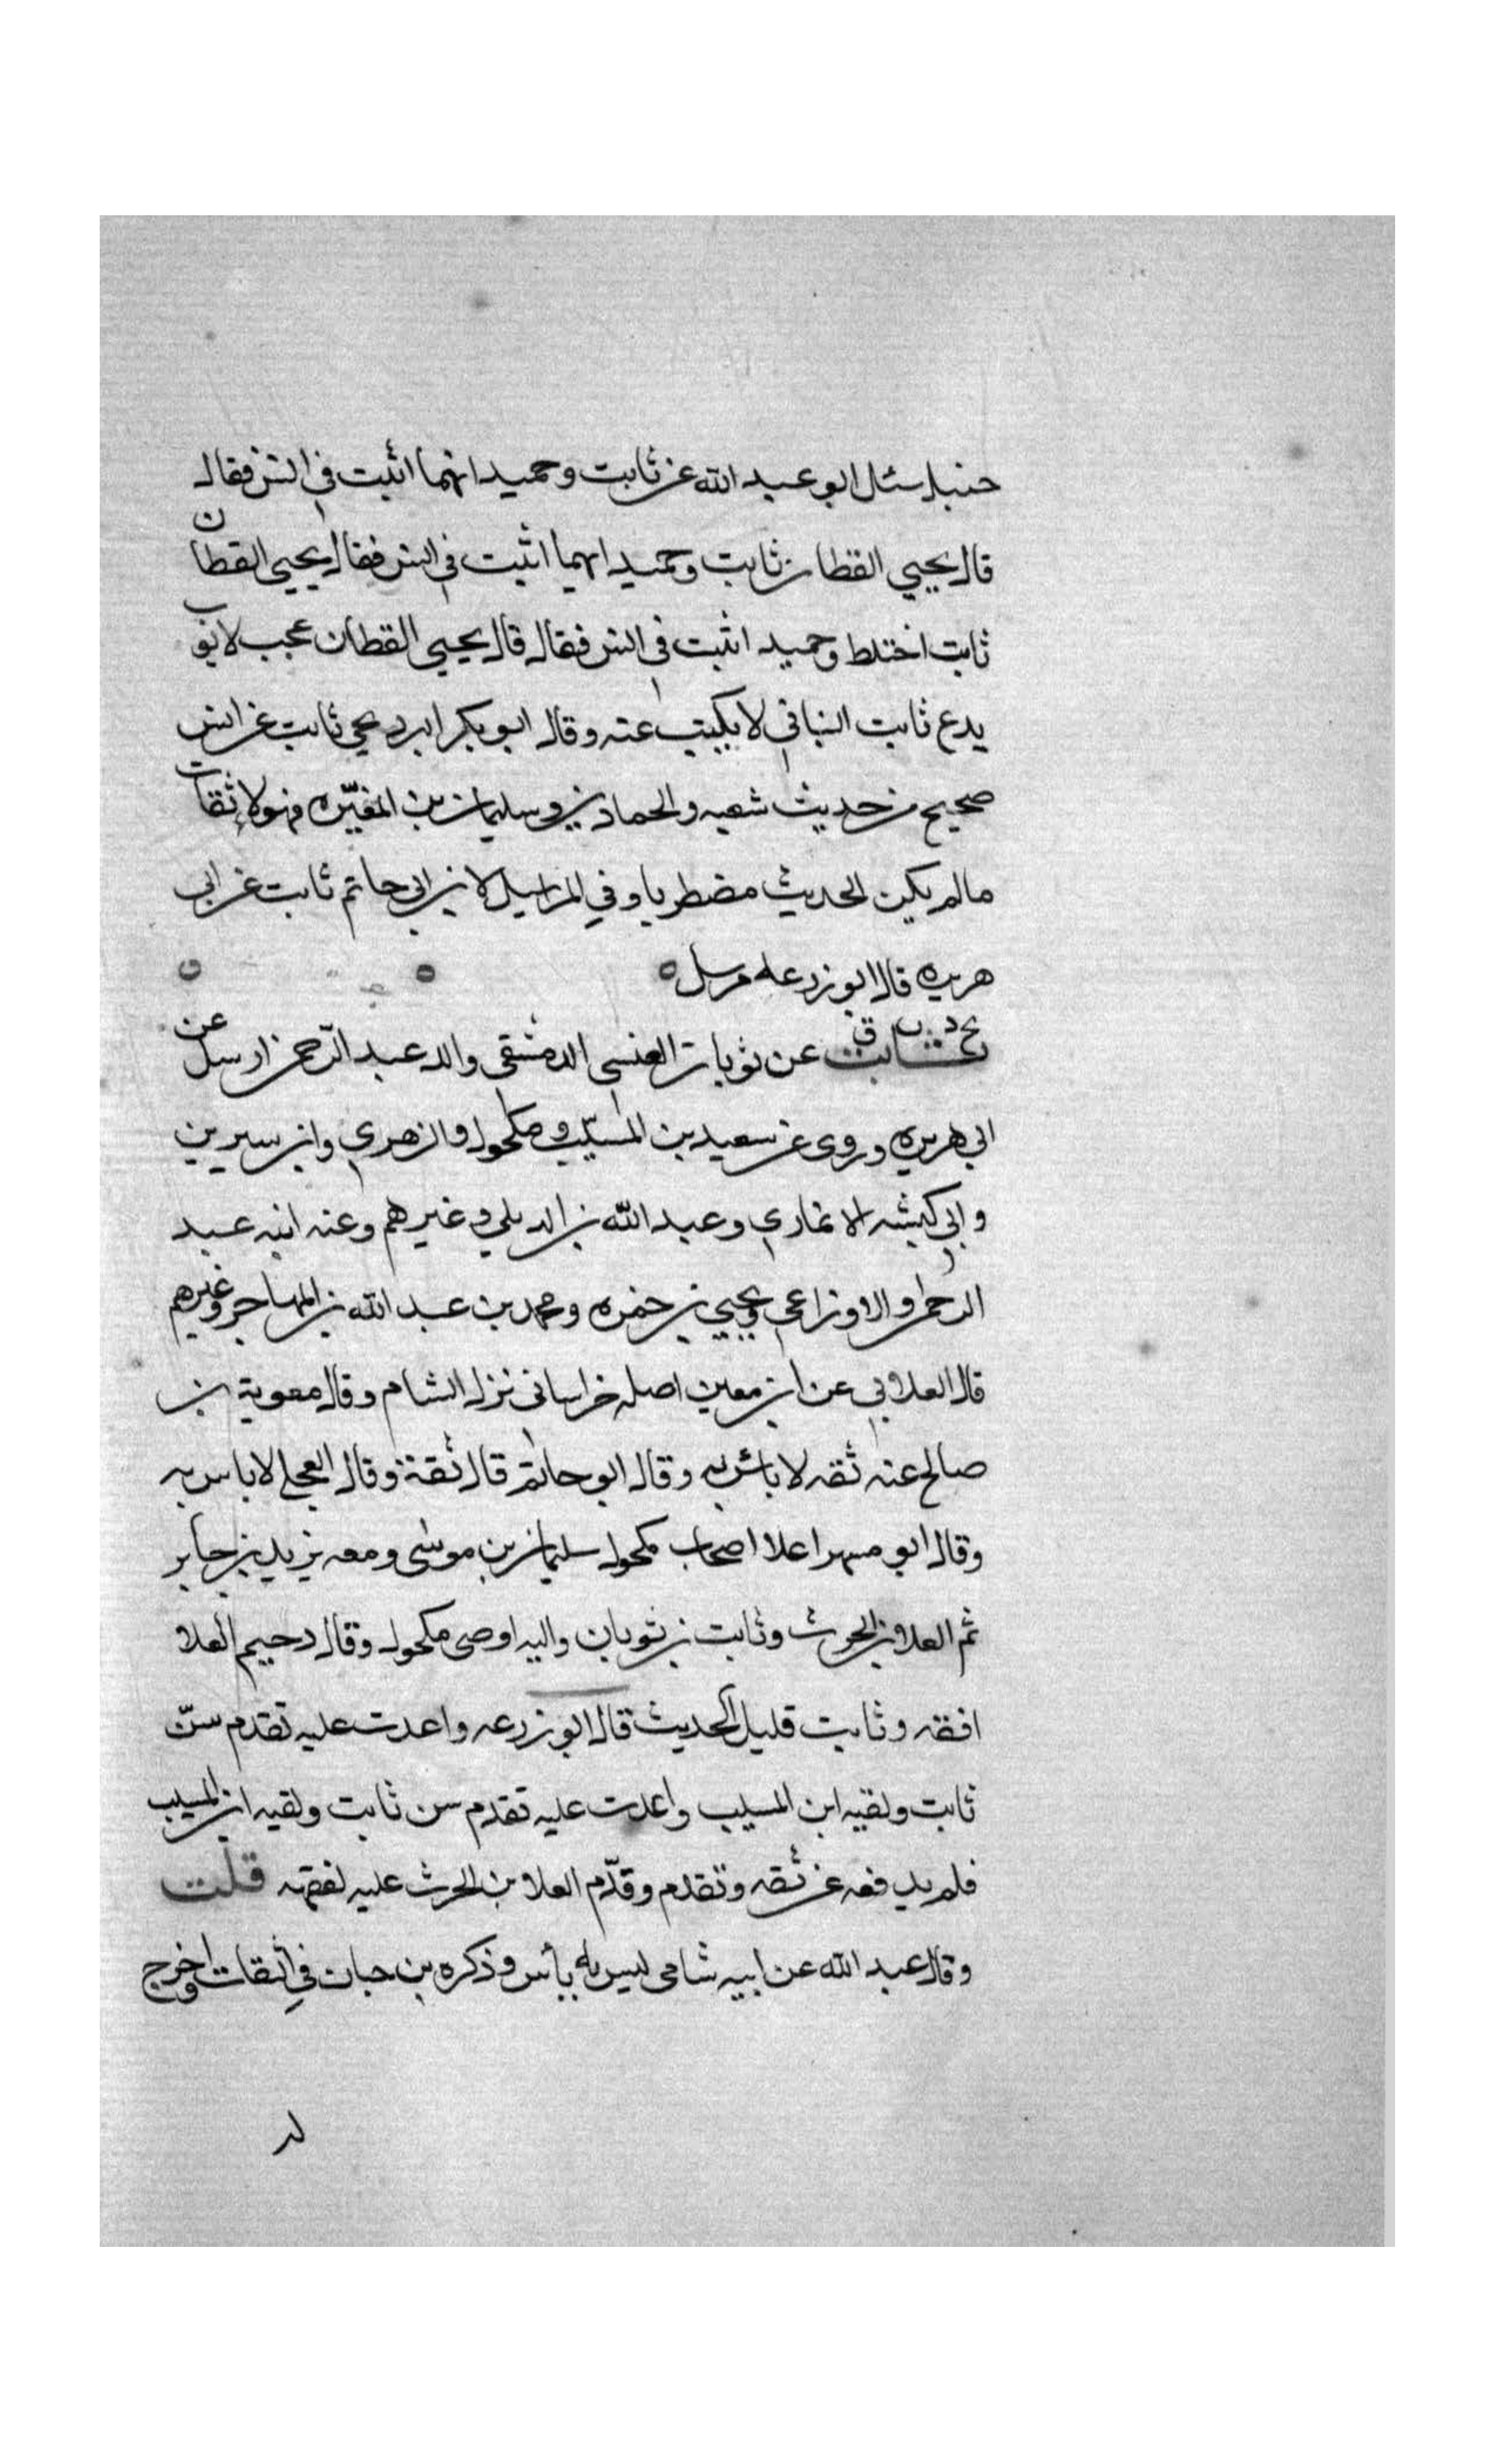 حنبل سئل ابو عبد الله عن ثابت وحميد ايهما اثبت في انس فقال
قال يحيي القطان ثابت وحميد ايهما اثبت في انس فقال يحيي القطان
ثابت اختلط وحميد اثبت في انس فقال قال يحيى القطان عجب لايوب
يدع ثابت البناني لا يكتب عنه وقال ابو بكر البرديجي ثابت عن انس
صحيح من حديث شعبه والحمادين وسليمان بن المغيره فهولا ثقات
مالم يكن الحديث مضطربا وفي المراسيل لابن ابي حاتم ثابت عن ابي
هريره قال ابو زرعه مرسل
بخ د ت ق
ثابت عن ثوبان العنسي الدمشقى والد عبد الرحمن ارسل عن
ابي هريره وروى عن سعيد بن المسيب ومكحول والزهري وابن سيرين
وابي كبشه الانماري وعبد الله بن الديلي وغيرهم وعنه ابنه عبد
الرحمن والاوزاعي ويحيي بن حمزه ومحمد بن عبد الله بن المهاجر وغيرهم
قال العلابي عن ابن معين اصله خراساني نزل الشام وقال معوية بن
صالح عنه ثقه لا باس به وقال ابو حاتم قال ثقة وقال العجلي لا باس به
وقال ابو مسهر اعلا اصحاب مكحول سليمان بن موسى ومعه يزيد بن جابر
ثم العلا بن الحرث وثابت بن ثوبان واليه اوصى مكحول وقال دحيم العلا
افقه وثابت قليل الحديث قال ابو زرعه واعدت عليه تقدم سنّ
ثابت ولقيه ابن المسيب واعدت عليه تقدم سن ثابت ولقيه ابن المسيب
فلم يدفعه عن ثقه وتقدم وقدّم العلا بن الحرث عليه لفقهه قلت
وقال عبد الله عن ابيه شامي ليس به بأس وذكره بن حبان في الثقات وخرج